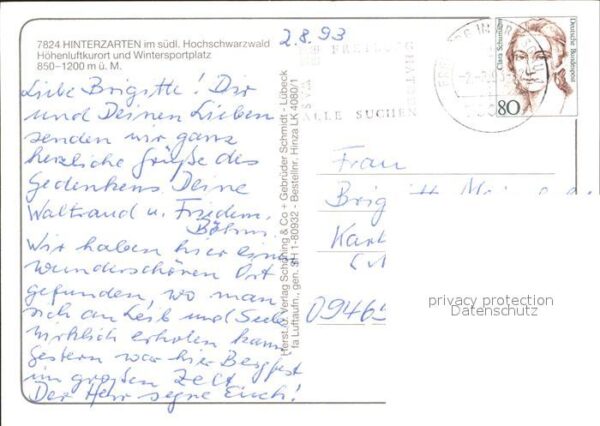 7824 HINTERZARTEN im südl. Hochschwarzwald
Höhenluftkurort und Wintersportplatz
850–1200 m ü. M.
2.8.93
Liebe Brigitte! Dir
und Deinen Lieben
senden wir ganz
herzliche Grüße des
Gedenkens Deine
Waltraud u. Friedem.
Böhm.
Wir haben hier einen
wunderschönen Ort
gefunden, wo man
sich an Leib und Seele
wirklich erholen kann
Gestern war hier Bergfest
im großen Zelt
Der Herr segne Euch!
Herst. u. Verlag Schöning & Co + Gebrüder Schmidt - Lübeck
fa Luftaufn., gen. SH 1-80932 - Bestellnr. Hinza LK 4080/1
FREIBURG
ALLE SUCHEN
Clara Schumann
Deutsche Bundespost
80
Frau
Brigitt
Karl
0946
privacy protection
Datenschutz